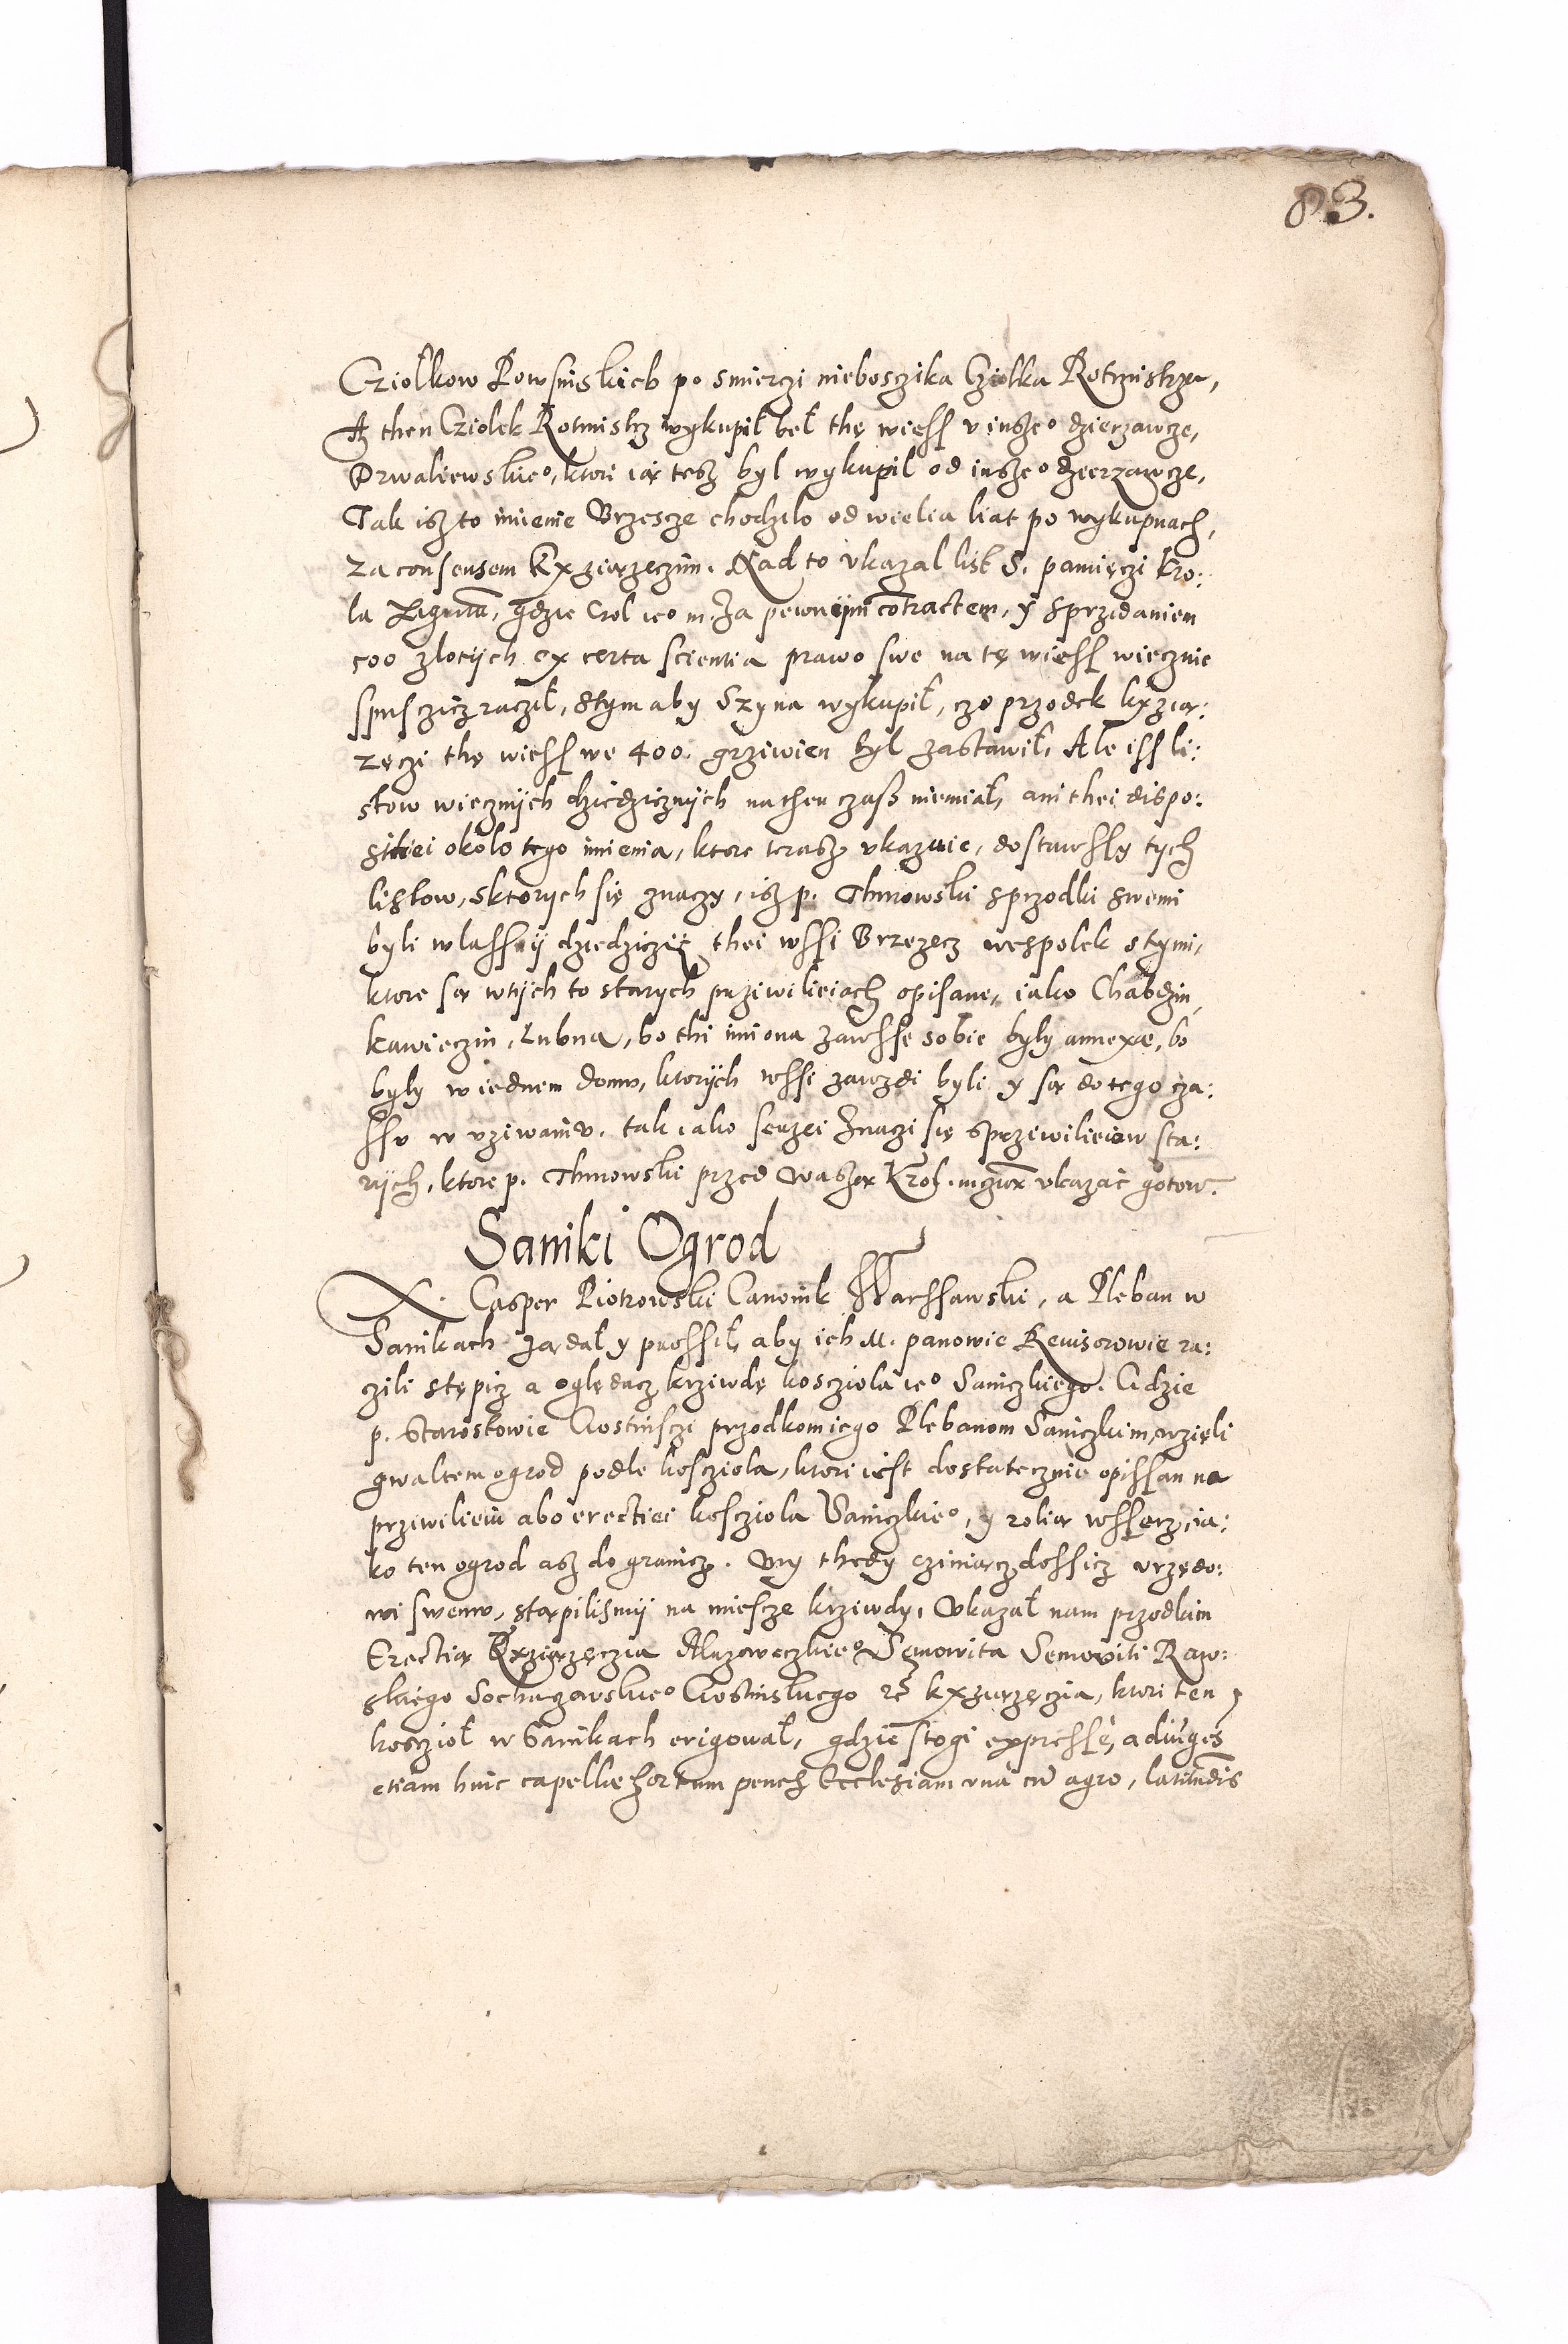 83.
Cziolkow Rowsniskich po smierczi nieboszika Cziolka Rotmistrza,
A then Cziolek Rotmistrz wykupił beł thę wiessſ v inszeº dzierzawcze,
Drwaliewskieº, ktori ią tesz byl wykupil od inszeº dzierzawcze,
Tak isz to imienie Brzescze chodzilo od wielia liat po wykupnach,
Za consensem Kxziążęczim. Nad to vkazal list S. pamięczi kro:
la Zigmūta, gdzie Crol ieº m. Za pewnÿm cōtractem, ÿ sprzedaniem
500 zlotÿch ex certa scientia prawo swe na tę wiessſ wiecznie
spusczicz raczeł, stym aby Szyna wykupił, czo przodek kxzią:
zęczi thę wiessſ we 400. grziwien był zastawił, Ale iss li:
stow wiecznÿch dziedzicznÿch na then czass niemiał, ani thei dispo:
sitiei okolo tego imienia, ktore terasz vkazuie, dostawssſy tych
listow, sktorych się znaczy, isz p. Thurowski sprzodki swemi
byli wlassnÿ dziedziczÿ thei wssi Brzezecz wespolek stymi,
ktore są wtÿch to starych prziwilieiach opisane, iako Chabdzin,
kawieczin, Łubna, bo thi imiona zawsse sobie były annexæ, bo
były w iednem domu, ktorÿch wssi zawzdi byli y są do tego cza:
ssu w vziwaniu. tak iako serzei Znaczi się sprziwilieiow sta:
rÿch, ktore p. Thurowski przed Waszą Krol. mczią vkazać gotow.
Saniki Ogrod
X. Casper Piotrowski Canonik Warssawski, a Pleban w
Sanikach żądał y prossił, aby ich M. panowie Reuisorowie ra:
czili stępicz a oględacz krziwdę kosciola ieº Saniczkiego. Gdzie
p. Starostowie Gostinsczi przodkom iego Plebanom Saniczkim, wzięli
gwaltem ogrod podle kosciola, ktori iest dostatecznie opissan na
przewilieiu abo erectiei kosciola Saniczkieº, y rolią wsserz, ia:
ko ten ogrod asz do granicz. My thedy cziniącz dossicz vrzędo:
wi swemu, stąpilismÿ na miescze krziwdy, Vkazał nam przodkiem
Erectią Kxziążęczia Mazoweczkieº Semowita Semouiti Raw:
skiego Sochaczewskieº Gostinskiego rc̄ kxziążęczia, ktori ten
kosciół w Sanikach erigował, gdzie stogi expressè, adiūges
etiam huic capellæ hortum penes Ecclesiam vnà cū agro, latitudīs